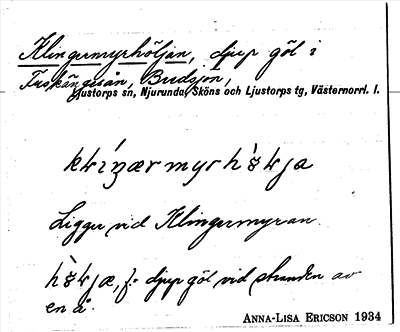 Klingermyrhöljan, djup göl i
Fuskängesån, Bredsjön,
Ljustorps sn, Njurunda, Sköns och Ljustorps tg, Västernorrl. l.
Ligger vid Klingermyran.
f. djup göl vid stranden av
en å.
ANNA-LISA ERICSON 1934